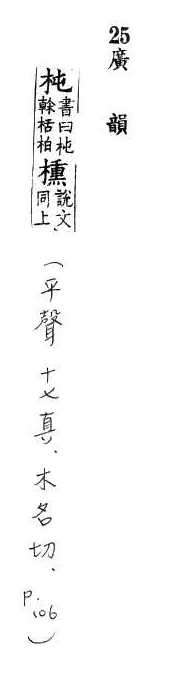 25 廣韻
杶書曰杶榦栝柏櫄說文、同上（平聲十七真、木名切、P.106）